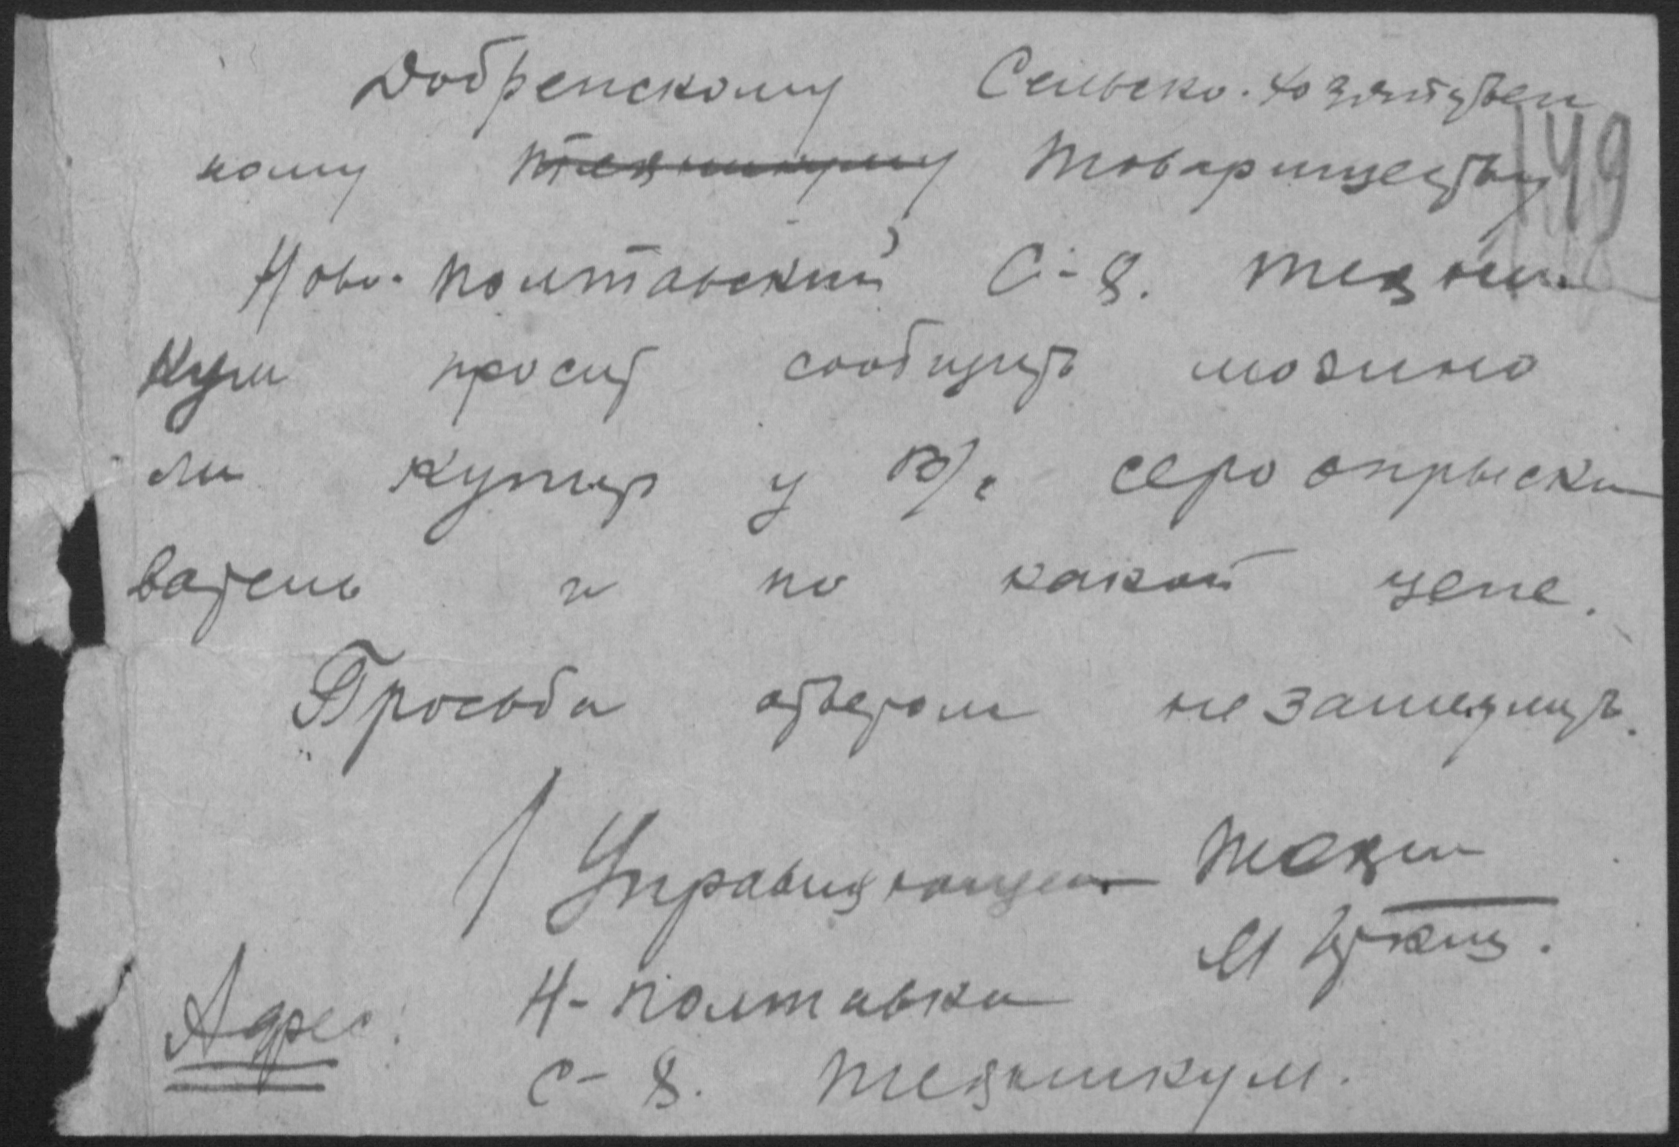 Добренскому Сельско-хозяйствен
ному Техникуму Товариществу
149
Ново-Полтавский С-Х. Техни-
кум просит сообщить можно
ли купить у В/с сероопрыски
ватель и по какой цене.
Просьба ответом не замедлить.
Управляющий Техн
М
Адрес: Н-Полтавка
С-Х. Техникум.